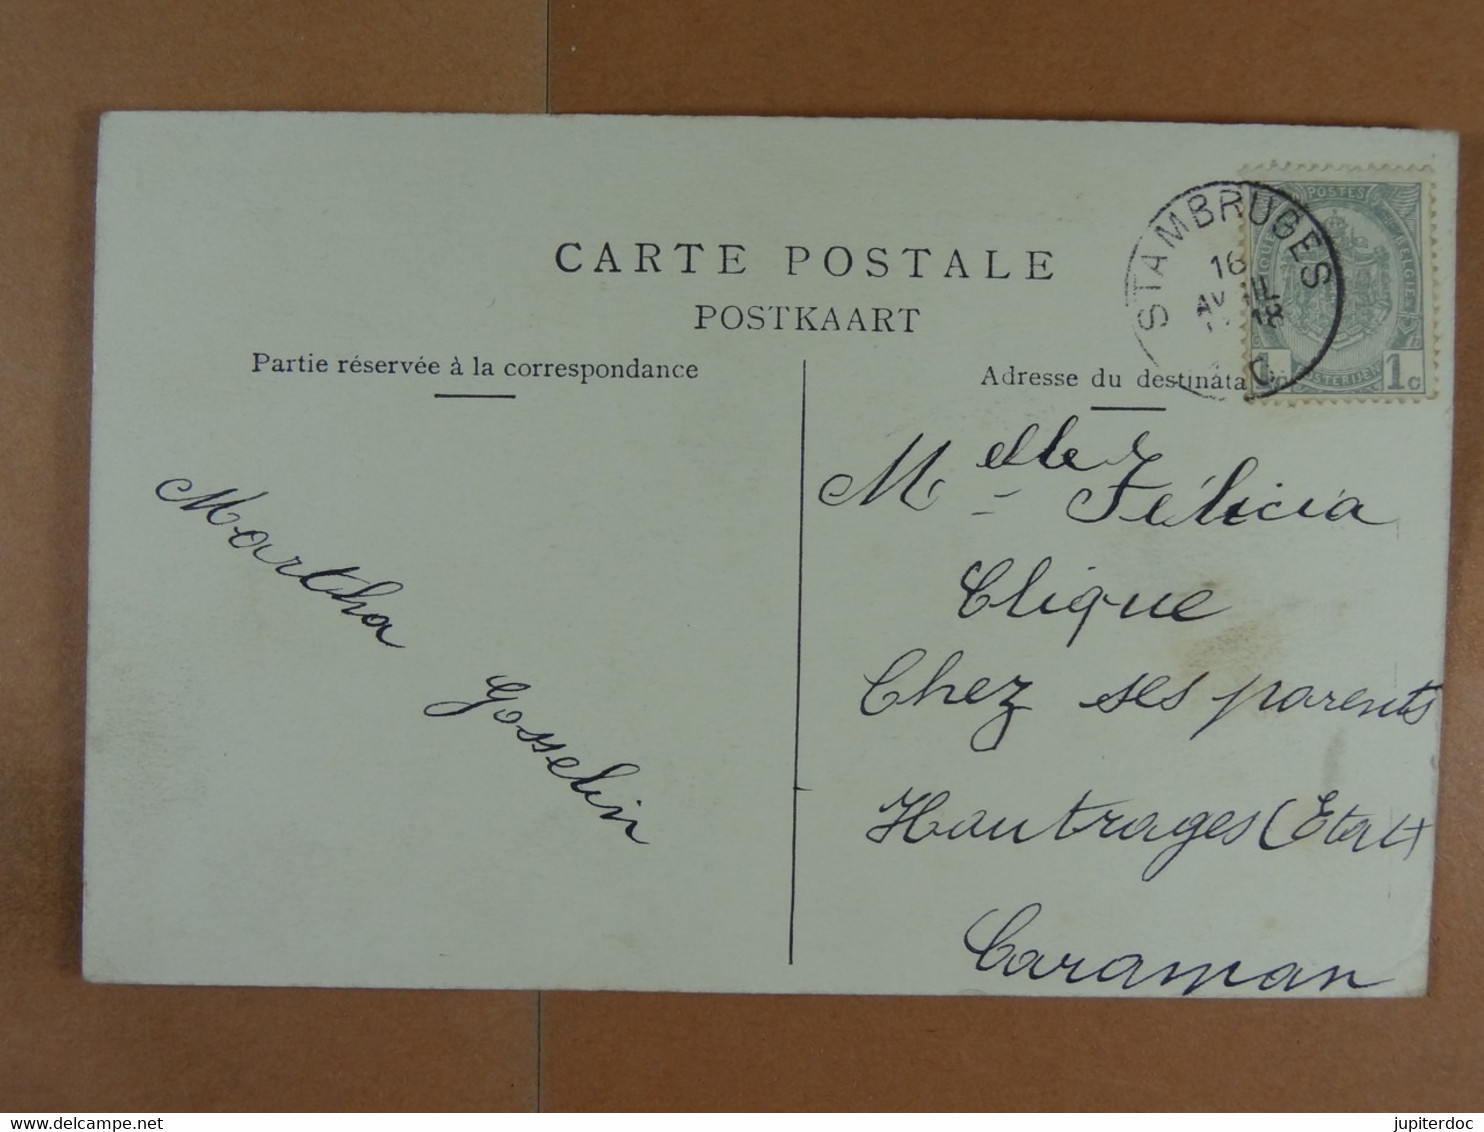 CARTE POSTALE
POSTKAART
Partie réservée à la correspondance
Adresse du destinata
STAMBRUGES
16
AV IL
18
POSTES
BELGIË
1c 1c
Martha
Gosselin
Melle Félicia
Clique
Chez ses parents
Hautrages (Etat)
Caraman
www.delcampe.net
jupiterdoc